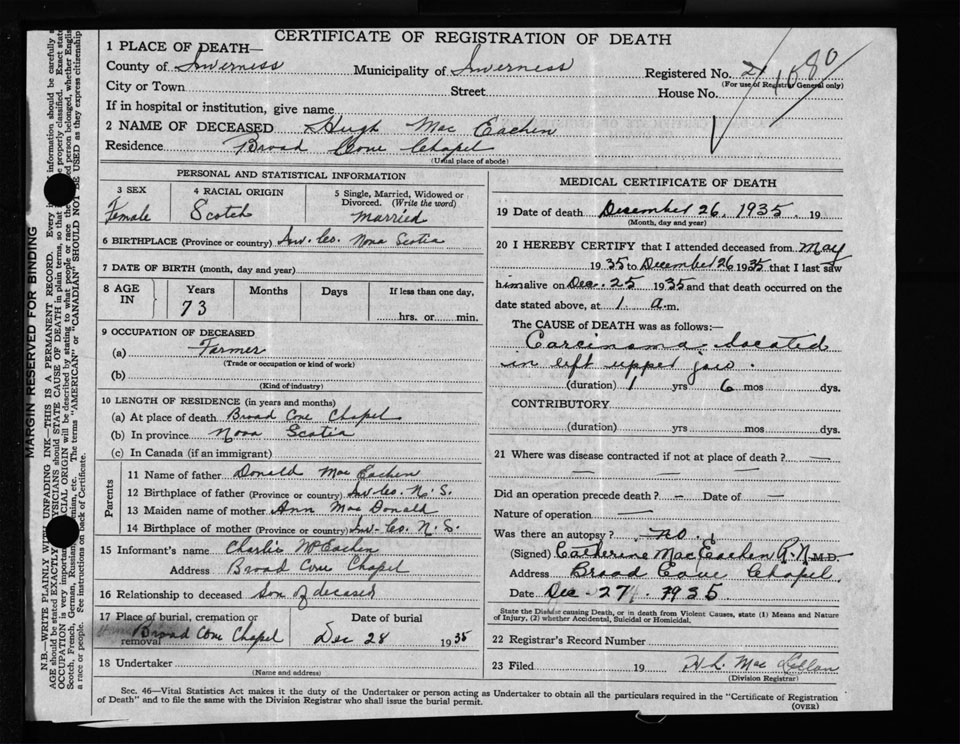 CERTIFICATE OF REGISTRATION OF DEATH
1 PLACE OF DEATH—
County of Inverness Municipality of Inverness Registered No. 2 1080
(For use of Registrar General only)
City or Town Street House No.
If in hospital or institution, give name
2 NAME OF DECEASED Hugh Mac Eachen
Residence Broad Cove Chapel
(Usual place of abode)
PERSONAL AND STATISTICAL INFORMATION
3 SEX
Female
4 RACIAL ORIGIN
Scotch
5 Single, Married, Widowed or Divorced. (Write the word)
married
6 BIRTHPLACE (Province or country) Inv. Co. Nova Scotia
7 DATE OF BIRTH (month, day and year)
8 AGE IN Years Months Days If less than one day,
73 hrs. or min.
9 OCCUPATION OF DECEASED
(a) Farmer
(Trade or occupation or kind of work)
(b)
(Kind of industry)
10 LENGTH OF RESIDENCE (in years and months)
(a) At place of death Broad Cove Chapel
(b) In province Nova Scotia
(c) In Canada (if an immigrant)
Parents
11 Name of father Donald Mac Eachen
12 Birthplace of father (Province or country) Inv. Co. N.S.
13 Maiden name of mother Ann Mac Donald
14 Birthplace of mother (Province or country) Inv. Co. N.S.
15 Informant's name Charlie McEachen
Address Broad Cove Chapel
16 Relationship to deceased Son of deceased
17 Place of burial, cremation or removal Date of burial
Broad Cove Chapel Dec 28 1935
18 Undertaker
(Name and address)
MEDICAL CERTIFICATE OF DEATH
19 Date of death December 26, 1935. 19
(Month, day and year)
20 I HEREBY CERTIFY that I attended deceased from May
1935 to December 26 1935 that I last saw
him alive on Dec. 25 1935 and that death occurred on
date stated above, at 1 a.m.
The CAUSE of DEATH was as follows:—
Carcinoma located
in left upper jaw.
(duration) 1 yrs 6 mos dys.
CONTRIBUTORY
(duration) yrs mos dys.
21 Where was disease contracted if not at place of death? —
— — —
Did an operation precede death? – Date of —
Nature of operation —
Was there an autopsy? no.
(Signed) Catherine MacEachen R.N. M.D.
Address Broad Cove Chapel.
Date Dec - 27 1935
State the Disease causing Death, or in death from Violent Causes, state (1) Means and Nature of Injury, (2) whether Accidental, Suicidal or Homicidal.
22 Registrar's Record Number
23 Filed 19 H.L. Mac Lellan
(Division Registrar)
Sec. 46—Vital Statistics Act makes it the duty of the Undertaker or person acting as Undertaker to obtain all the particulars required in the "Certificate of Registration
of Death" and to file the same with the Division Registrar who shall issue the burial permit.
(OVER)
MARGIN RESERVED FOR BINDING
N.B.—WRITE PLAINLY WITH UNFADING INK—THIS IS A PERMANENT RECORD. Every information should be carefully
AGE should be stated EXACTLY. PHYSICIANS should STATE CAUSE OF DEATH in plain terms, so that be properly classified. Exact
OCCUPATION is very important. RACIAL ORIGIN will be described by stating to what people or race the person belonged, whether
Scotch, French, German, Russian, etc. The terms "AMERICAN" or "CANADIAN" SHOULD NOT BE USED as they express citizenship
a race or people. See instructions on back of Certificate.